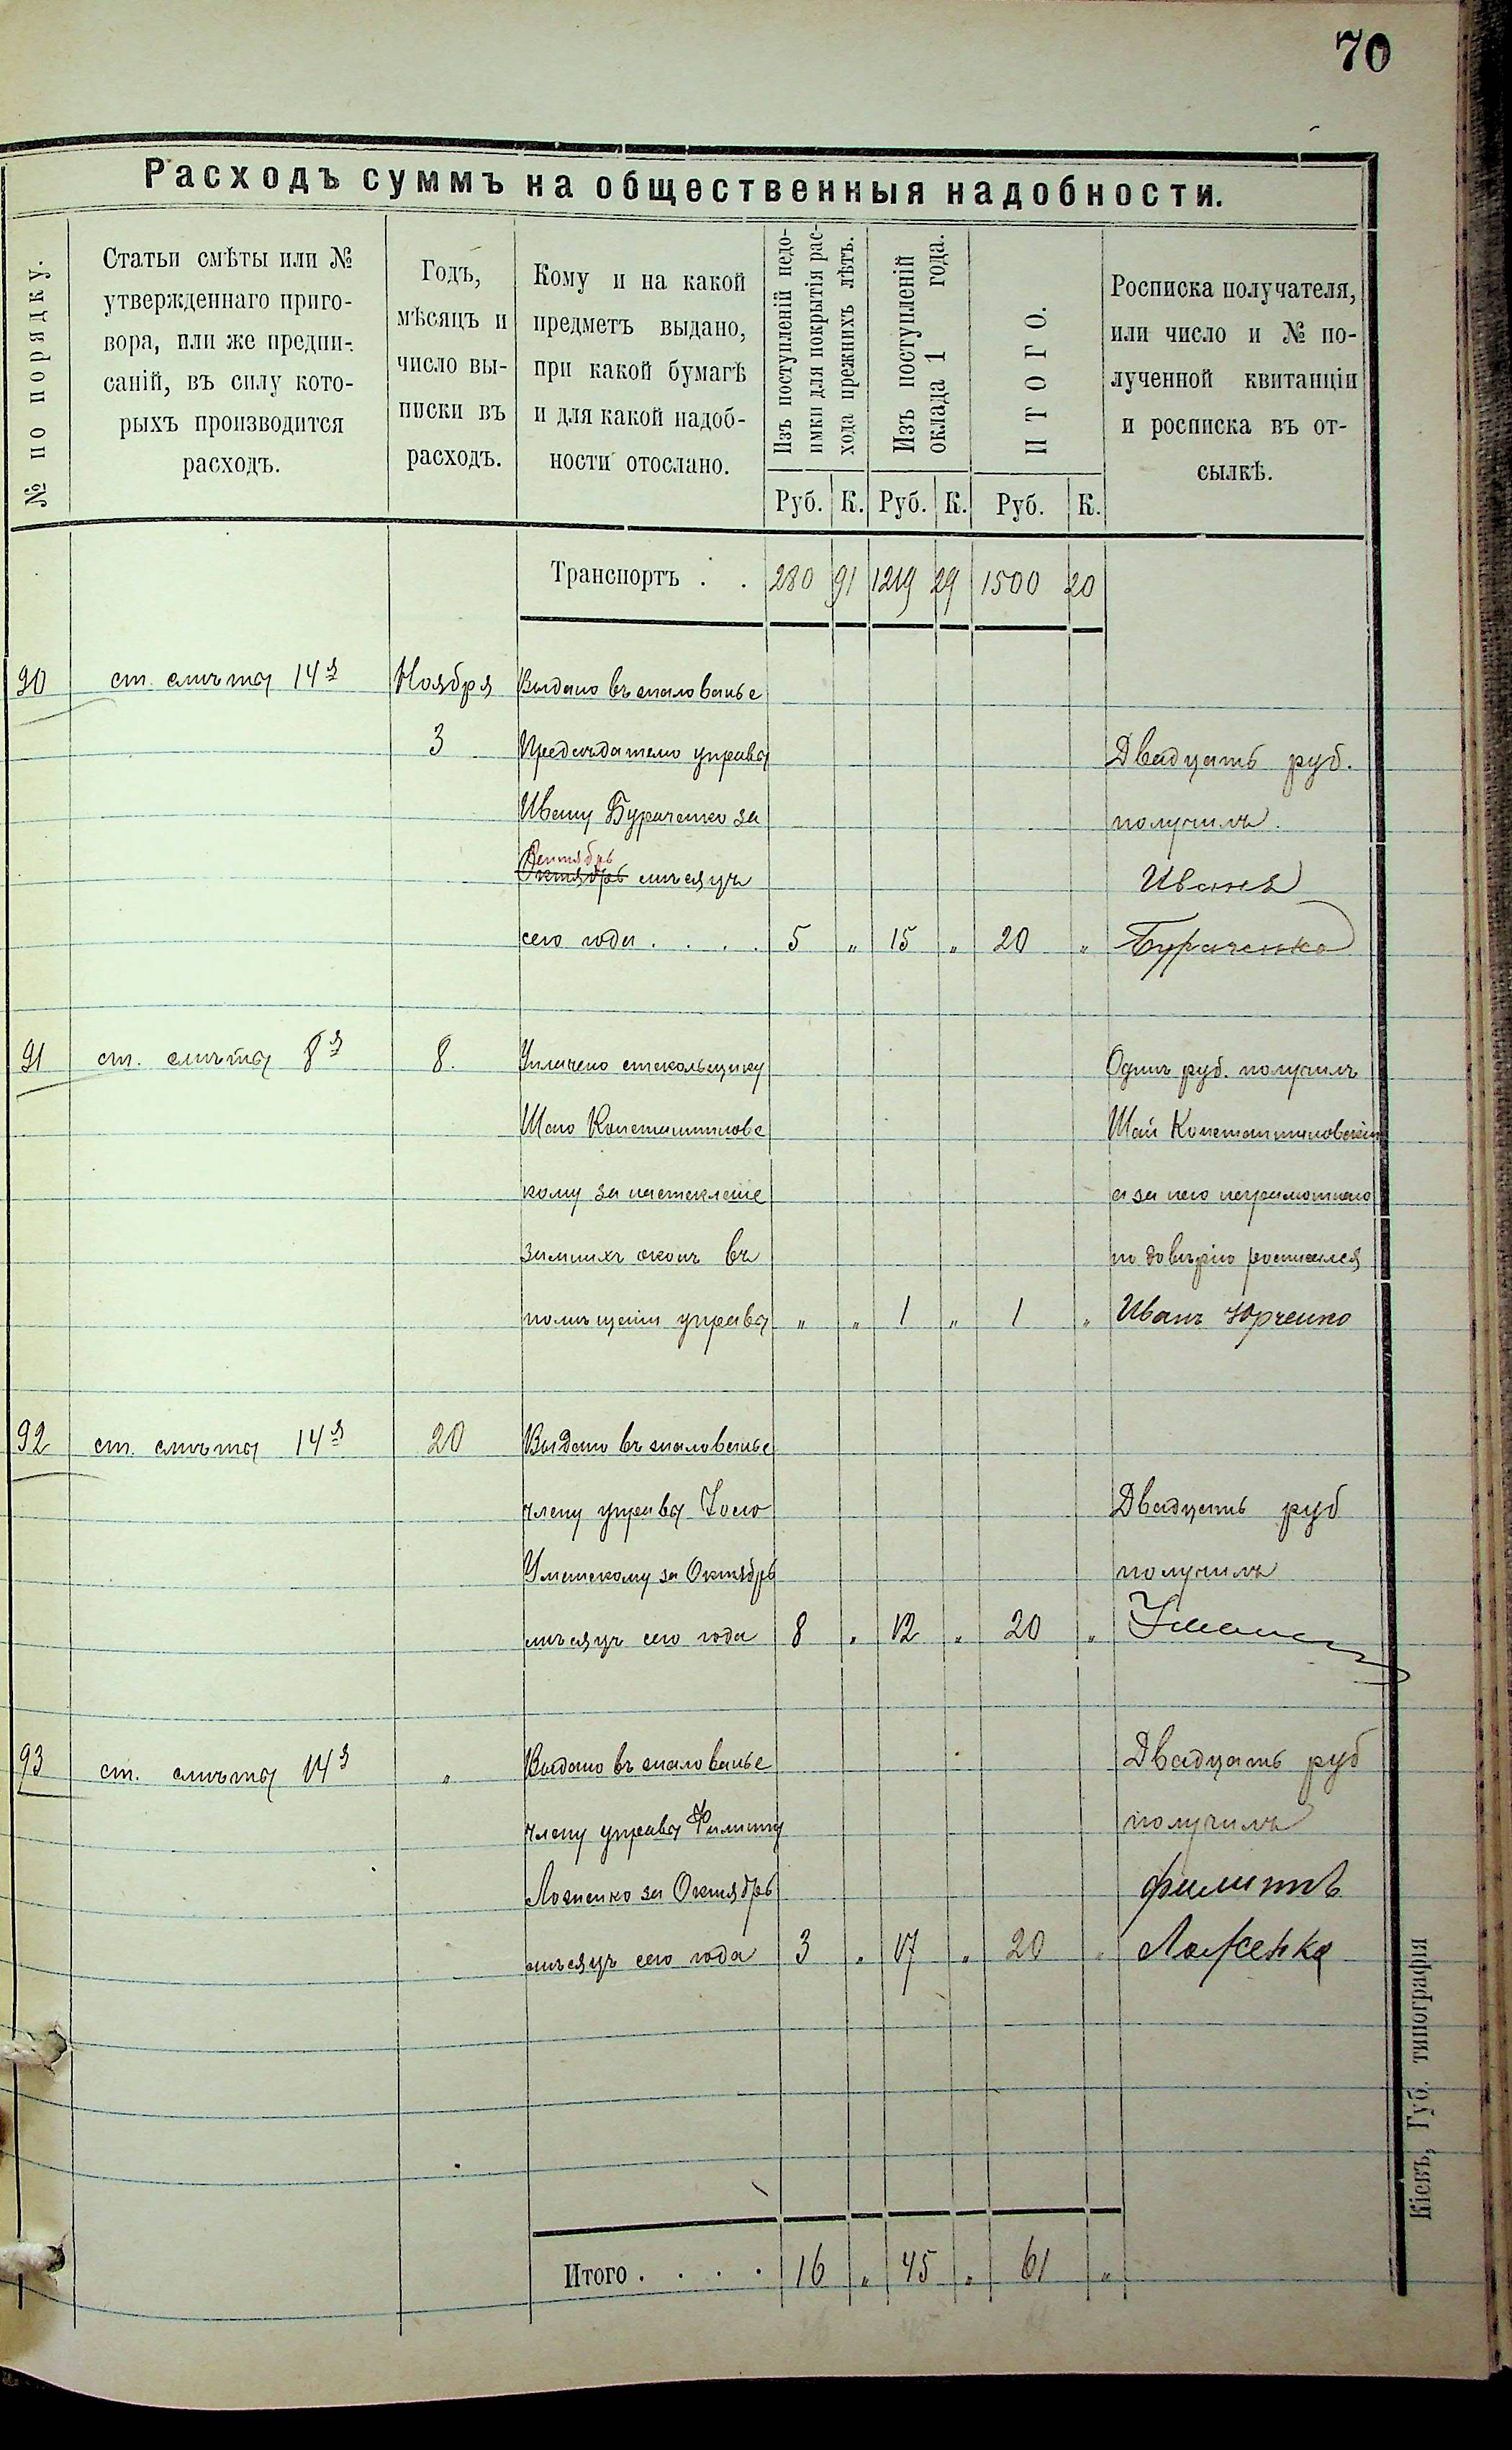 70
Расходъ суммъ на общественныя надобности.
№ по порядку.
Статьи смѣты или №
утвержденнаго приго-
вора, или же предпи-
саній, въ силу кото-
рыхъ производится
расходъ.
Годъ,
мѣсяцъ и
число вы-
писки въ
расходъ.
Кому и на какой
предметъ выдано,
при какой бумагѣ
и для какой надоб-
ности отослано.
Изъ поступленій недо-
имки для покрытія рас-
хода прежнихъ лѣтъ.
Изъ поступленій
оклада 1 года.
ИТОГО.
Росписка получателя,
или число и № по-
лученной квитанціи
и росписка въ от-
сылкѣ.
Руб. К. Руб. К. Руб. К.
Транспортъ . . 280 91 1219 29 1500 20
90 ст. смѣты 14я Ноября Выдано въ жалованье
3 Предсѣдателю управы Двадцать руб.
Ивану Бураченко за получилъ.
Сентябрь
Октябрь мѣсяцъ Иванъ
сего года . . . . 5 „ 15 „ 20 „ Бураченко
91 ст. смѣты 8я 8. Уплачено стекольщику Одинъ руб. получилъ
Шаю Константиновс Шай Константиновскій
кому за настекленіе а за него неграмотнаго
зимнихъ оконъ въ по довѣрію росписался
помѣщеніи управы „ „ 1 „ 1 „ Иванъ Юрченко
92 ст. смѣты 14я 20 Выдано въ жалованье
члену управы Двадцать руб
Уманскому за Октябрь получилъ
мѣсяцъ сего года 8 „ 12 „ 20 „
93 ст. смѣты 14я „ Выдано въ жалованье Двадцать руб
члену управы Филипу получилъ
Ложенко за Октябрь филиппъ
мѣсяцъ сего года 3 „ 17 „ 20 „ Ложенко
Итого . . . . 16 „ 45 „ 61 „
Кіевъ, Губ. типографія